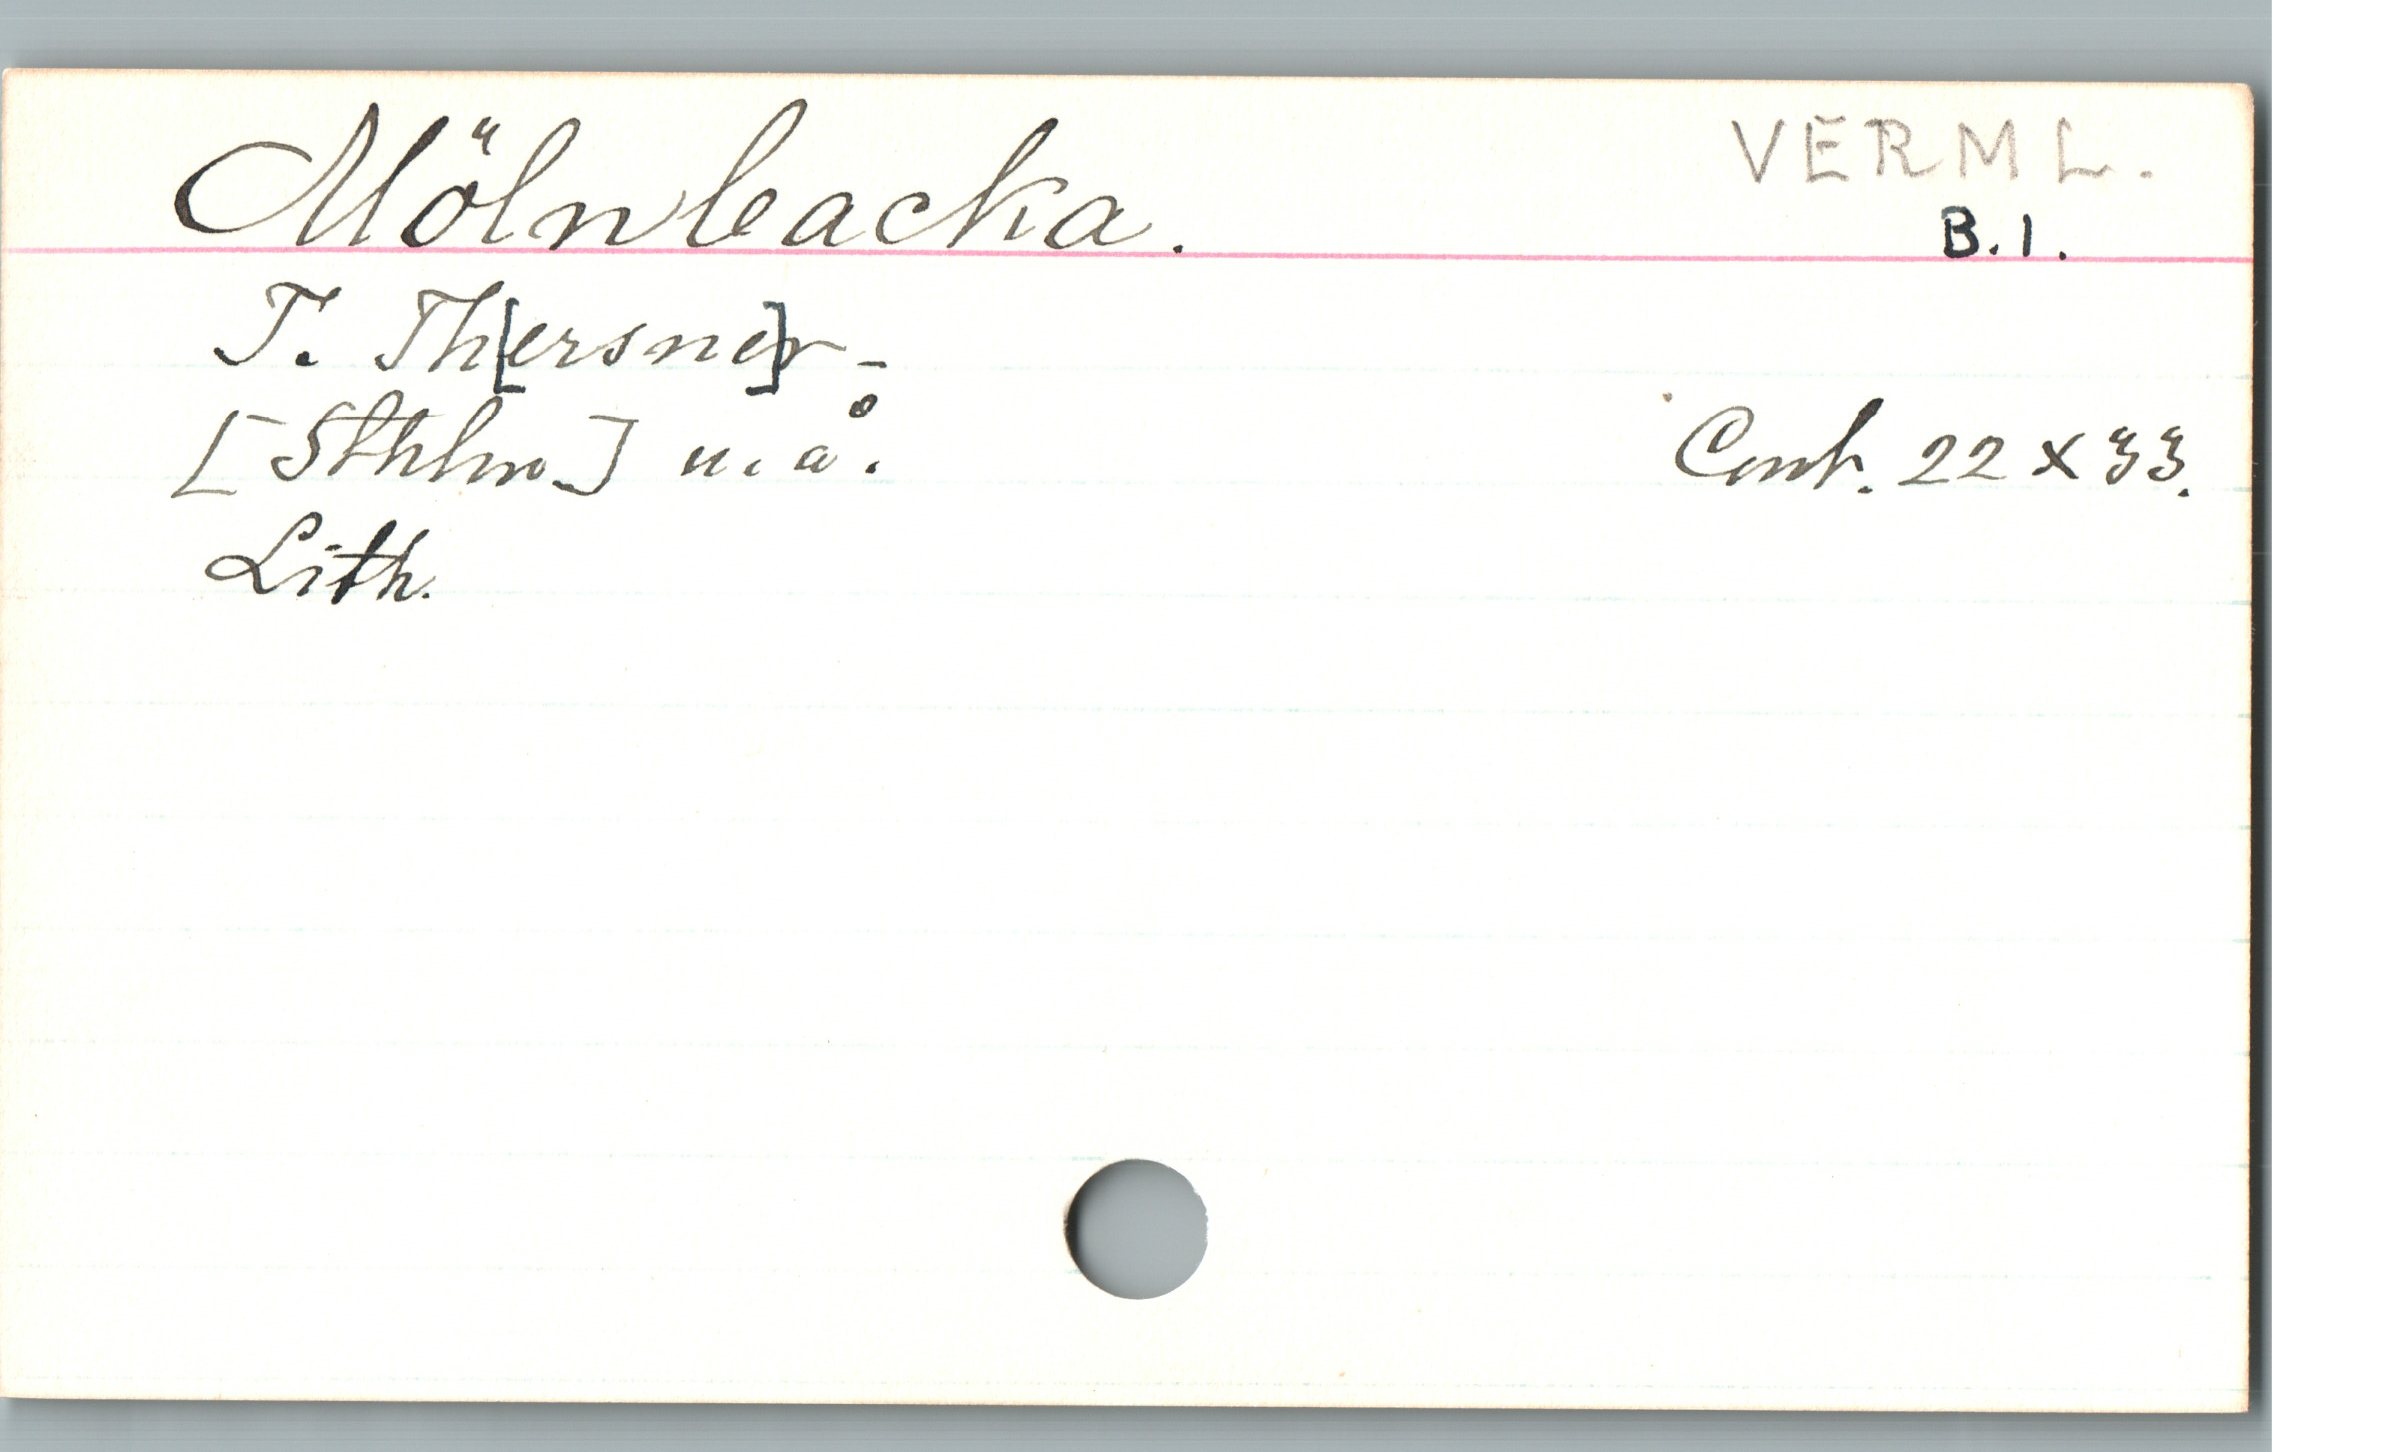 Mölnbacka.
VERML.
B.1.
T. Th[ersne]r -
[Sthlm.] u. å.
Cont. 22 x 33.
Lith.